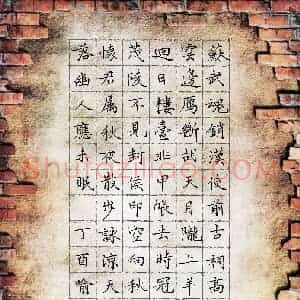 蘇武魂銷漢使前古祠高
雲邊雁斷胡天月隴上羊
迴日樓臺非甲帳去時冠
茂陵不見封侯印空向秋
懷君屬秋夜散步詠涼天
落幽人應未眠丁酉喻